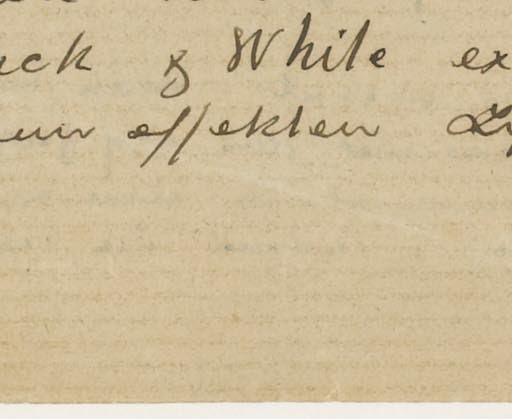 ck & White ex
eur effekten Zy